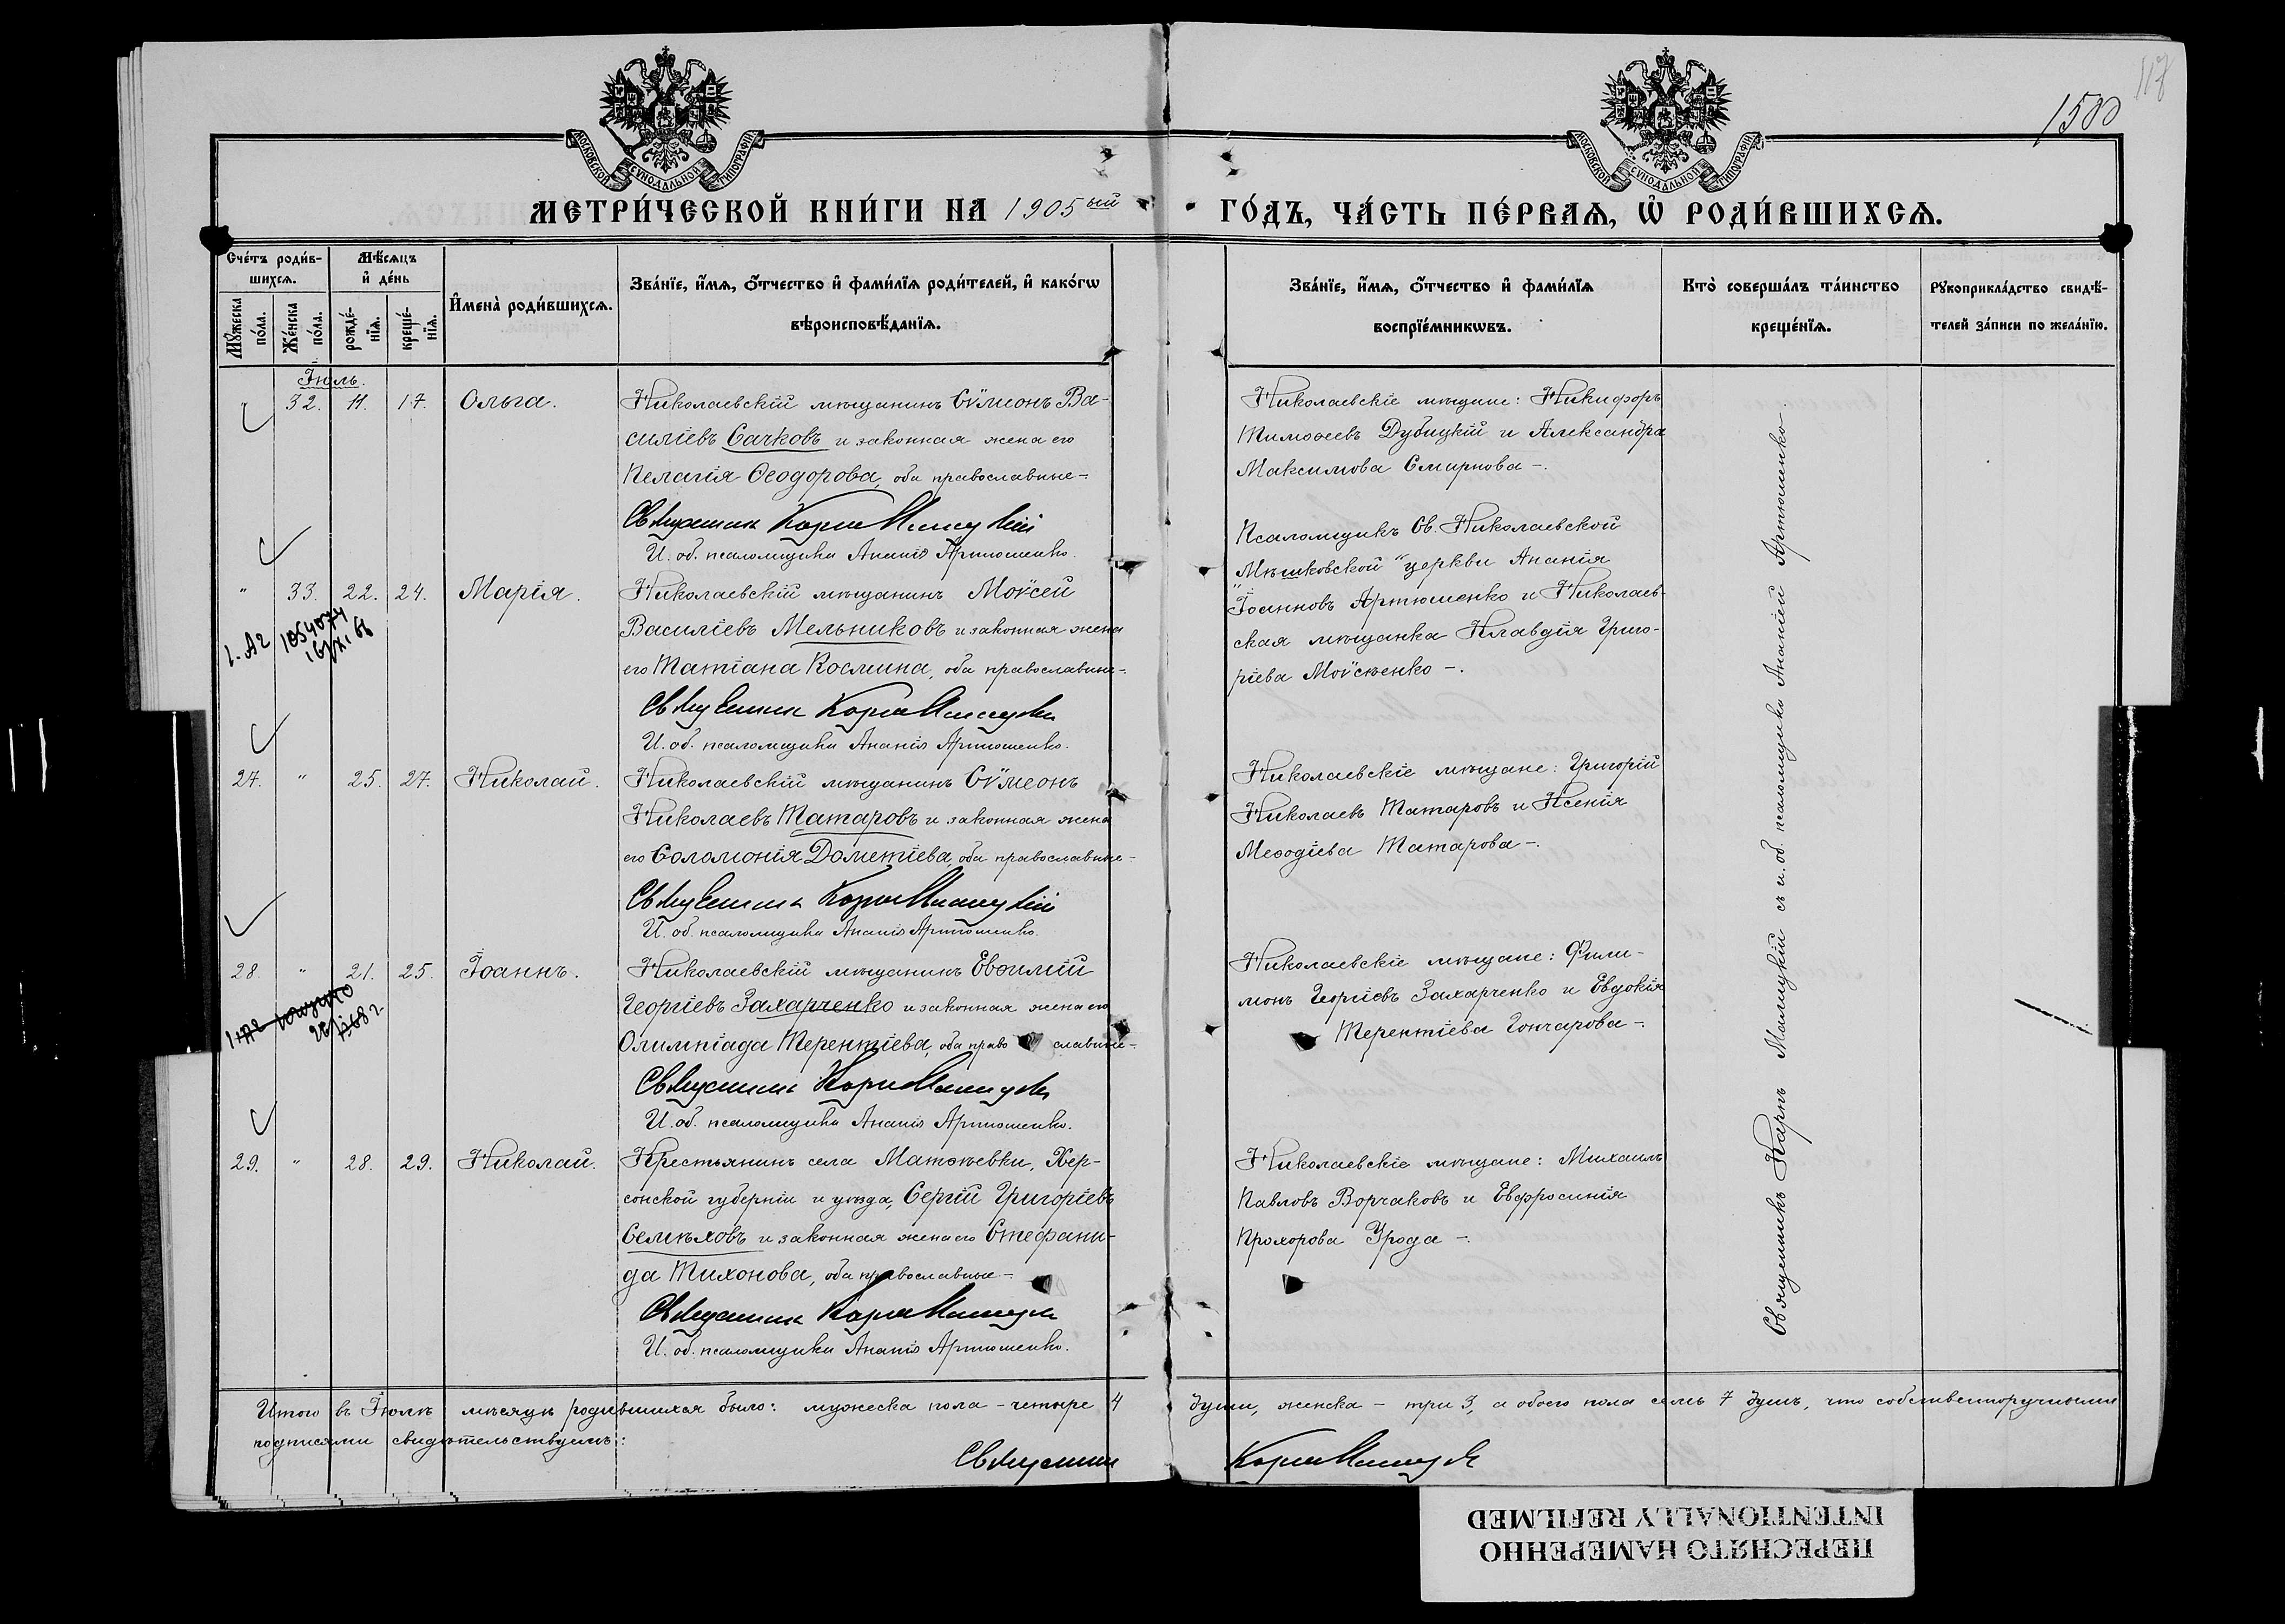 117
1500
МОСКОВСКОЙ СУНОДАЛЬНОЙ ТИПОГРАФІИ
МОСКОВСКОЙ СУНОДАЛЬНОЙ ТИПОГРАФІИ
МЕТРИ́ЧЕСКОЙ КНИ́ГИ НА 1905ый ГО́ДЪ, ЧА́СТЬ ПЕ́РВАѦ, Ѡ РОДИ́ВШИХСѦ.
Сче́тъ роди́вшихсѧ.
Мꙋ́жеска по́ла.
Же́нска по́ла.
Мѣ́сѧцъ и҆ де́нь
рожде́нїѧ.
креще́нїѧ.
И҆мена̀ роди́вшихсѧ.
Зва́нїе, и҆́мѧ, ѻ҆́тчество и҆ фами́лїѧ роди́телей, и҆ како́гѡ
вѣроисповѣ́данїѧ.
Зва́нїе, и҆́мѧ, ѻ҆́тчество и҆ фами́лїѧ
воспрїе́мникѡвъ.
Кто̀ соверша́лъ та́инство
креще́нїѧ.
Рꙋкоприкла́дство свидѣ́телей за́писи по жела́нїю.
Іюль.
" 32. 11. 17. Ольга.
Николаевскій мѣщанинъ Сѵмеонъ Ва-
силіевъ Сачковъ и законная жена его
Пелагія Ѳеодорова, оба православные-
Священникъ Карпъ Малицкій
И. об. псаломщика Ананія Артюшенко.
Николаевскіе мѣщане: Никифоръ
Тимоѳеевъ Дубицкій и Александра
Максимова Смирнова -.
" 33. 22. 24. Марія.
Николаевскій мѣщанинъ Моѵсей
Василіевъ Мельниковъ и законная жена
его Татіана Космина, оба православные-.
Священникъ Карпъ Малицкій
И. об. псаломщика Ананія Артюшенко.
Псаломщикъ Св. Николаевской
"Мѣшковской" церкви Ананія
Іоанновъ Артюшенко и Николаев-
ская мѣщанка Клавдія Григо-
ріева Моѵсѣенко -.
27. " 25. 27. Николай.
Николаевскій мѣщанинъ Сѵмеонъ
Николаевъ Татаровъ и законная жена
его Соломонія Дометіева, оба православные-
Священникъ Карпъ Малицкій
И. об. псаломщика Ананія Артюшенко.
Николаевскіе мѣщане: Григорій
Николаевъ Татаровъ и Ксенія
Меѳодіева Татарова -.
28. " 21. 25. Іоаннъ.
Николаевскій мѣщанинъ Евѳимій
Георгіевъ Захарченко и законная жена его
Олимпіада Терентіева, оба православные-
Священникъ Карпъ Малицкій
И. об. псаломщика Ананія Артюшенко.
Николаевскіе мѣщане: Фили-
монъ Георгіевъ Захарченко и Евдокія
Терентіева Гончарова -.
29. " 28. 29. Николай.
Крестьянинъ села Матвѣевки, Хер-
сонской губерніи и уѣзда, Сергій Григоріевъ
Семѣховъ и законная жена его Стефани-
да Тихонова, оба православные -
Священникъ Карпъ Малицкій
И. об. псаломщика Ананія Артюшенко.
Николаевскіе мѣщане: Михаилъ
Павловъ Ворчаковъ и Евфросинія
Прохорова Урода -.
Священникъ Карпъ Малицкій съ и. об. псаломщика Ананіей Артюшенко.
Итого въ Іюлѣ мѣсяцѣ родившихся было: мужеска пола - четыре 4 души, женска - три 3, а обоего пола семь 7 душъ, что собственноручными
подписями свидѣтельствуемъ:
Священникъ Карпъ Малицкій
ПЕРЕСНЯТО НАМЕРЕННО
INTENTIONALLY REFILMED